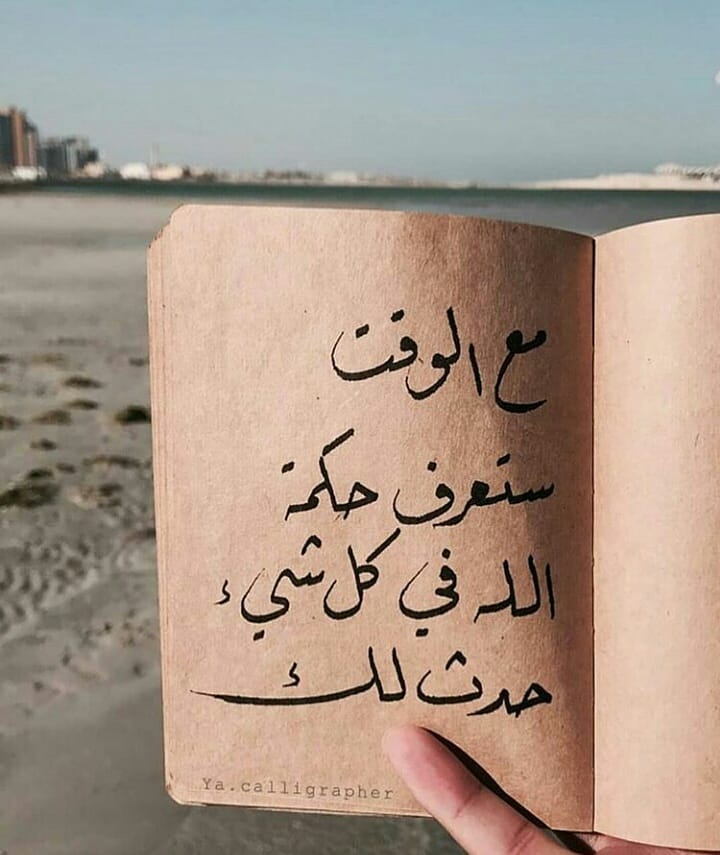 مع الوقت
ستعرف حكمة
الله في كل شيء
حدث لك
Ya.calligrapher